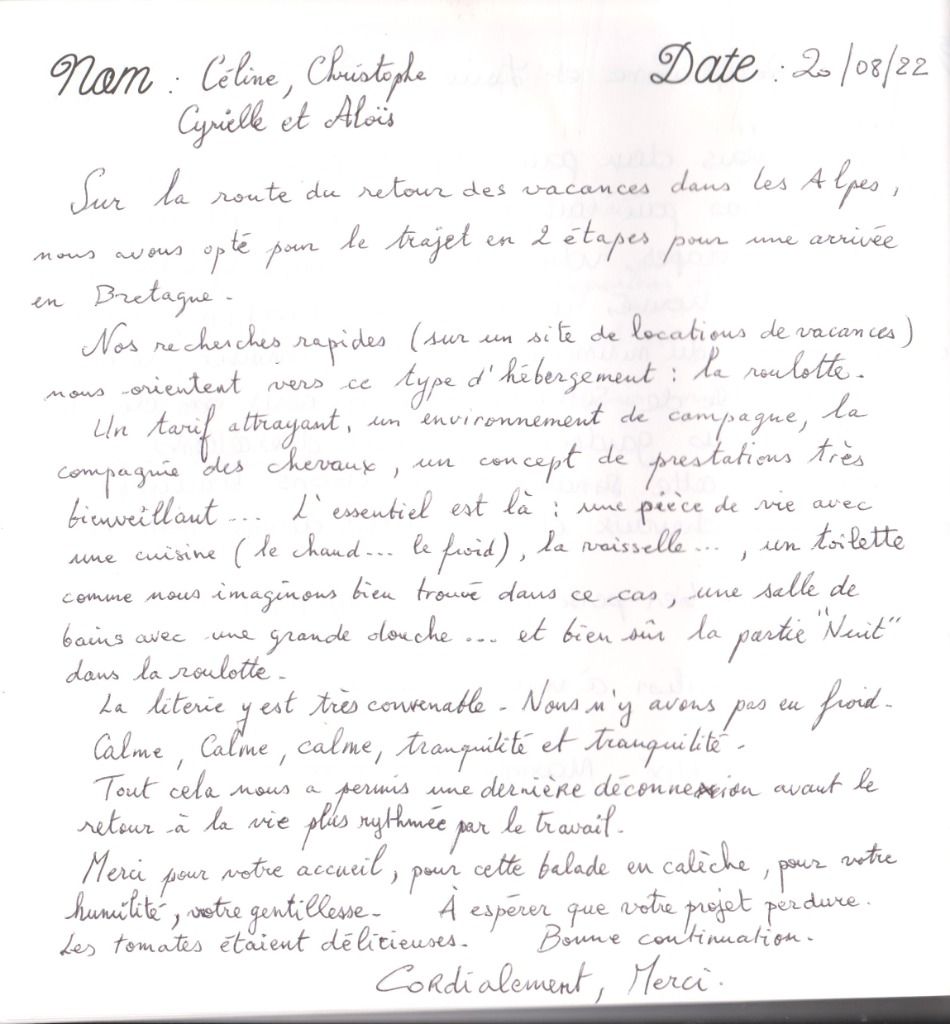 Nom : Céline, Christophe Date : 20/08/22
Cyrielle et Aloïs
Sur la route du retour des vacances dans les Alpes,
nous avons opté pour le trajet en 2 étapes pour une arrivée
en Bretagne.
Nos recherches rapides (sur un site de locations de vacances)
nous orientent vers ce type d'hébergement : la roulotte.
Un tarif attrayant, un environnement de campagne, la
compagnie des chevaux, un concept de prestations très
bienveillant... L'essentiel est là : une pièce de vie avec
une cuisine (le chaud... le froid), la vaisselle..., un toilette
comme nous imaginons bien trouvé dans ce cas, une salle de
bains avec une grande douche... et bien sûr la partie "Nuit"
dans la roulotte.
La literie y est très convenable - Nous n'y avons pas eu froid.
Calme, Calme, calme, tranquilité et tranquilité.
Tout cela nous a permis une dernière déconnexion avant le
retour à la vie plus rythmée par le travail.
Merci pour votre accueil, pour cette balade en calèche, pour votre
humilité, votre gentillesse. À espérer que votre projet perdure.
Les tomates étaient délicieuses. Bonne continuation.
Cordialement, Merci.